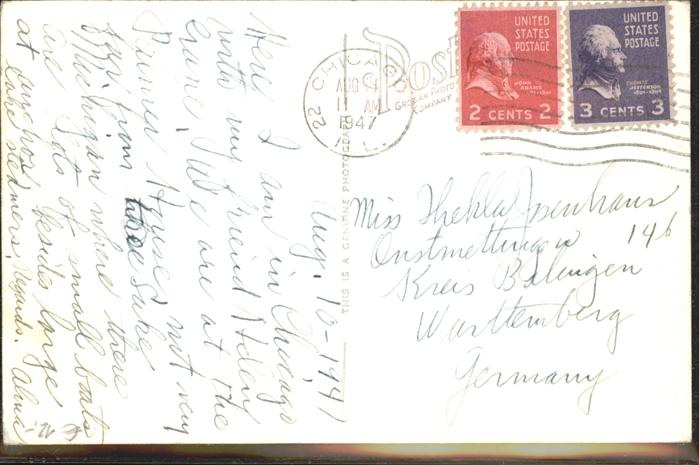 Aug. 10 - 1947
Here I am in Chicago
with my friend Helen
Grane. We are at the
Palmer House, not very
far from the Lake
Michigan where there
are lots of small boats
at anchor besides large
lake steamers. Regards. Alma
THIS IS A GENUINE PHOTOGRAPH
POST
GROGAN PHOTO
COMPANY
CHICAGO
22
AUG
11 AM
1947
ILL.
UNITED
STATES
POSTAGE
JOHN
ADAMS
2 CENTS 2
UNITED
STATES
POSTAGE
THOMAS
JEFFERSON
3 CENTS 3
Miss Thekla Isenhaus
Onstmettingen 146
Kreis Balingen
Württemberg
Germany